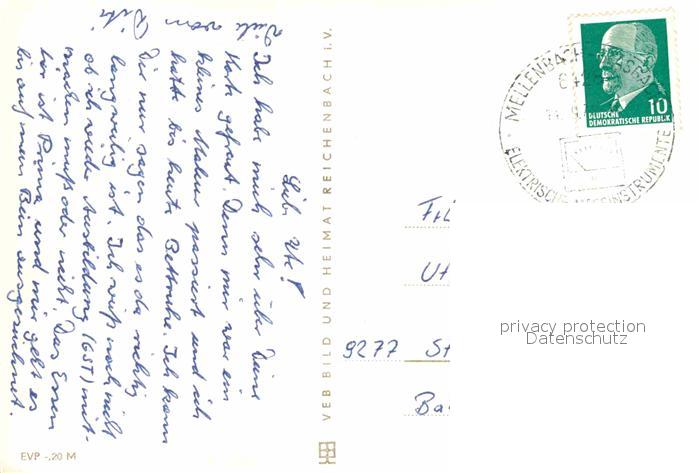 Liebe Ute!
Ich habe mich sehr über Deine
Karte gefreut. Denn mir war ein
kleines Malheur passiert und ich
hatte bis heute Bettruhe. Ich kann
Dir nur sagen das es da richtig
langweilig ist. Ich weiß noch nicht
ob ich wieder Ausbildung (GST) mit-
machen muß oder nicht. Das Essen
hier ist Prima und mir geht es
bis auf mein Bein ausgezeichnet.
Viele von
VEB BILD UND HEIMAT REICHENBACH I.V.
EVP -,20 M
MELLENBACH-
ELEKTRISCHE MESSINSTRUMENTE
10
DEUTSCHE
DEMOKRATISCHE REPUBLIK
Ut
9277 St
Ba
privacy protection
Datenschutz